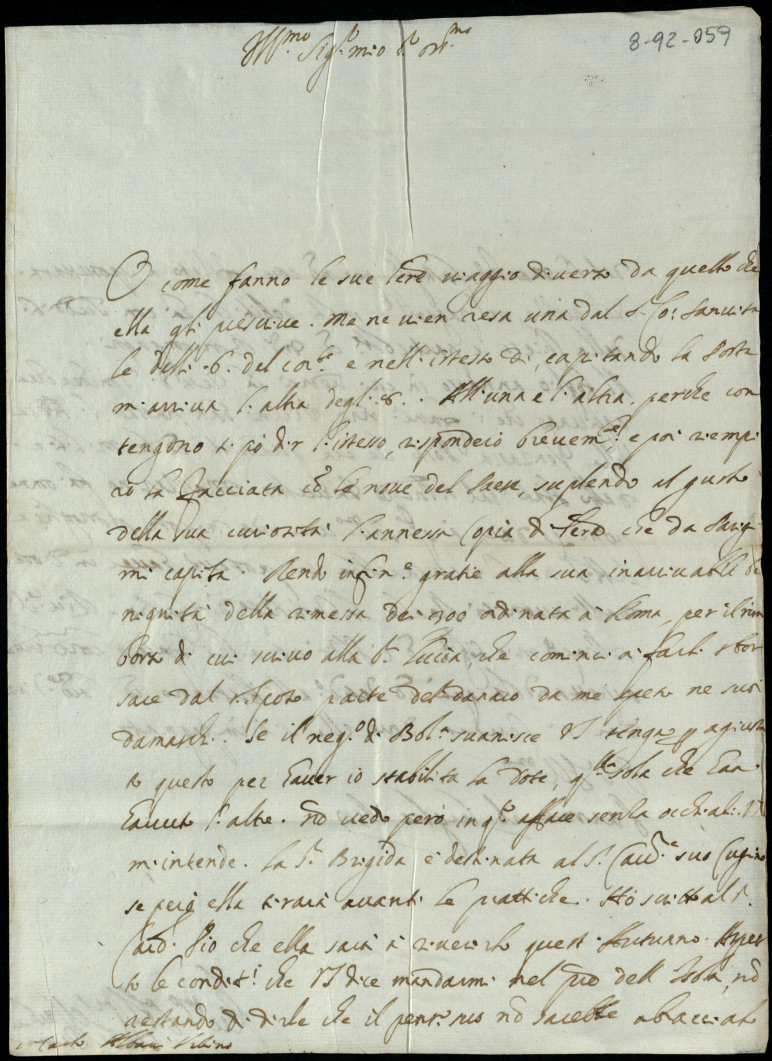 8-92-059
Ill.mo Sig.r mio P.ron
O come fanno le sue l're viaggio diverso da quello che
ella gli prescrive. Me ne vien resa una dal S. Co: Sanvita
le delli .6. del cor.e e nell'istesso dì, capitando la Posta
m'arriva l'altra degl'.8. All'una e l'altra, perche con
tengono si può dir l'istesso, risponderò brevem.e e poi riempi
rò la facciata cõ le nove del Paese, suplendo al gusto
della sua curiosità l'annessa Copia di che da Parigi
mi capita. Rendo infin.e gratie alla sua inarrivabile be
nignità della rimessa dei 1300 ordinata à Roma, per il rim
borso di cui scrivo alla S.ra Lucia, che cominci à farli sbor
sare dal parte del danaro da me speso ne suoi
damaschi. Se il neg.o di Bol.a svanisce VS tenga p agiusta
to questo per haver io stabilita la dote, q.lla sola che han.
havuto l'altre. nõ vedo però in q.o affare senza occhiali. VS
m'intende. La S.ra Brigida è destinata al S. Cav.e suo Cugino
se però ella tirarà avanti le prattiche. Hò scritto al S.
Card. Pio che ella sarà à riverirlo quest'Autunno. Aspet
to le condit.i che VS dice mandarmi nel dell'Isola, nõ
restando di dirle che il pens. nõ sarebbe abbracciato
Carlo Albani Urbino